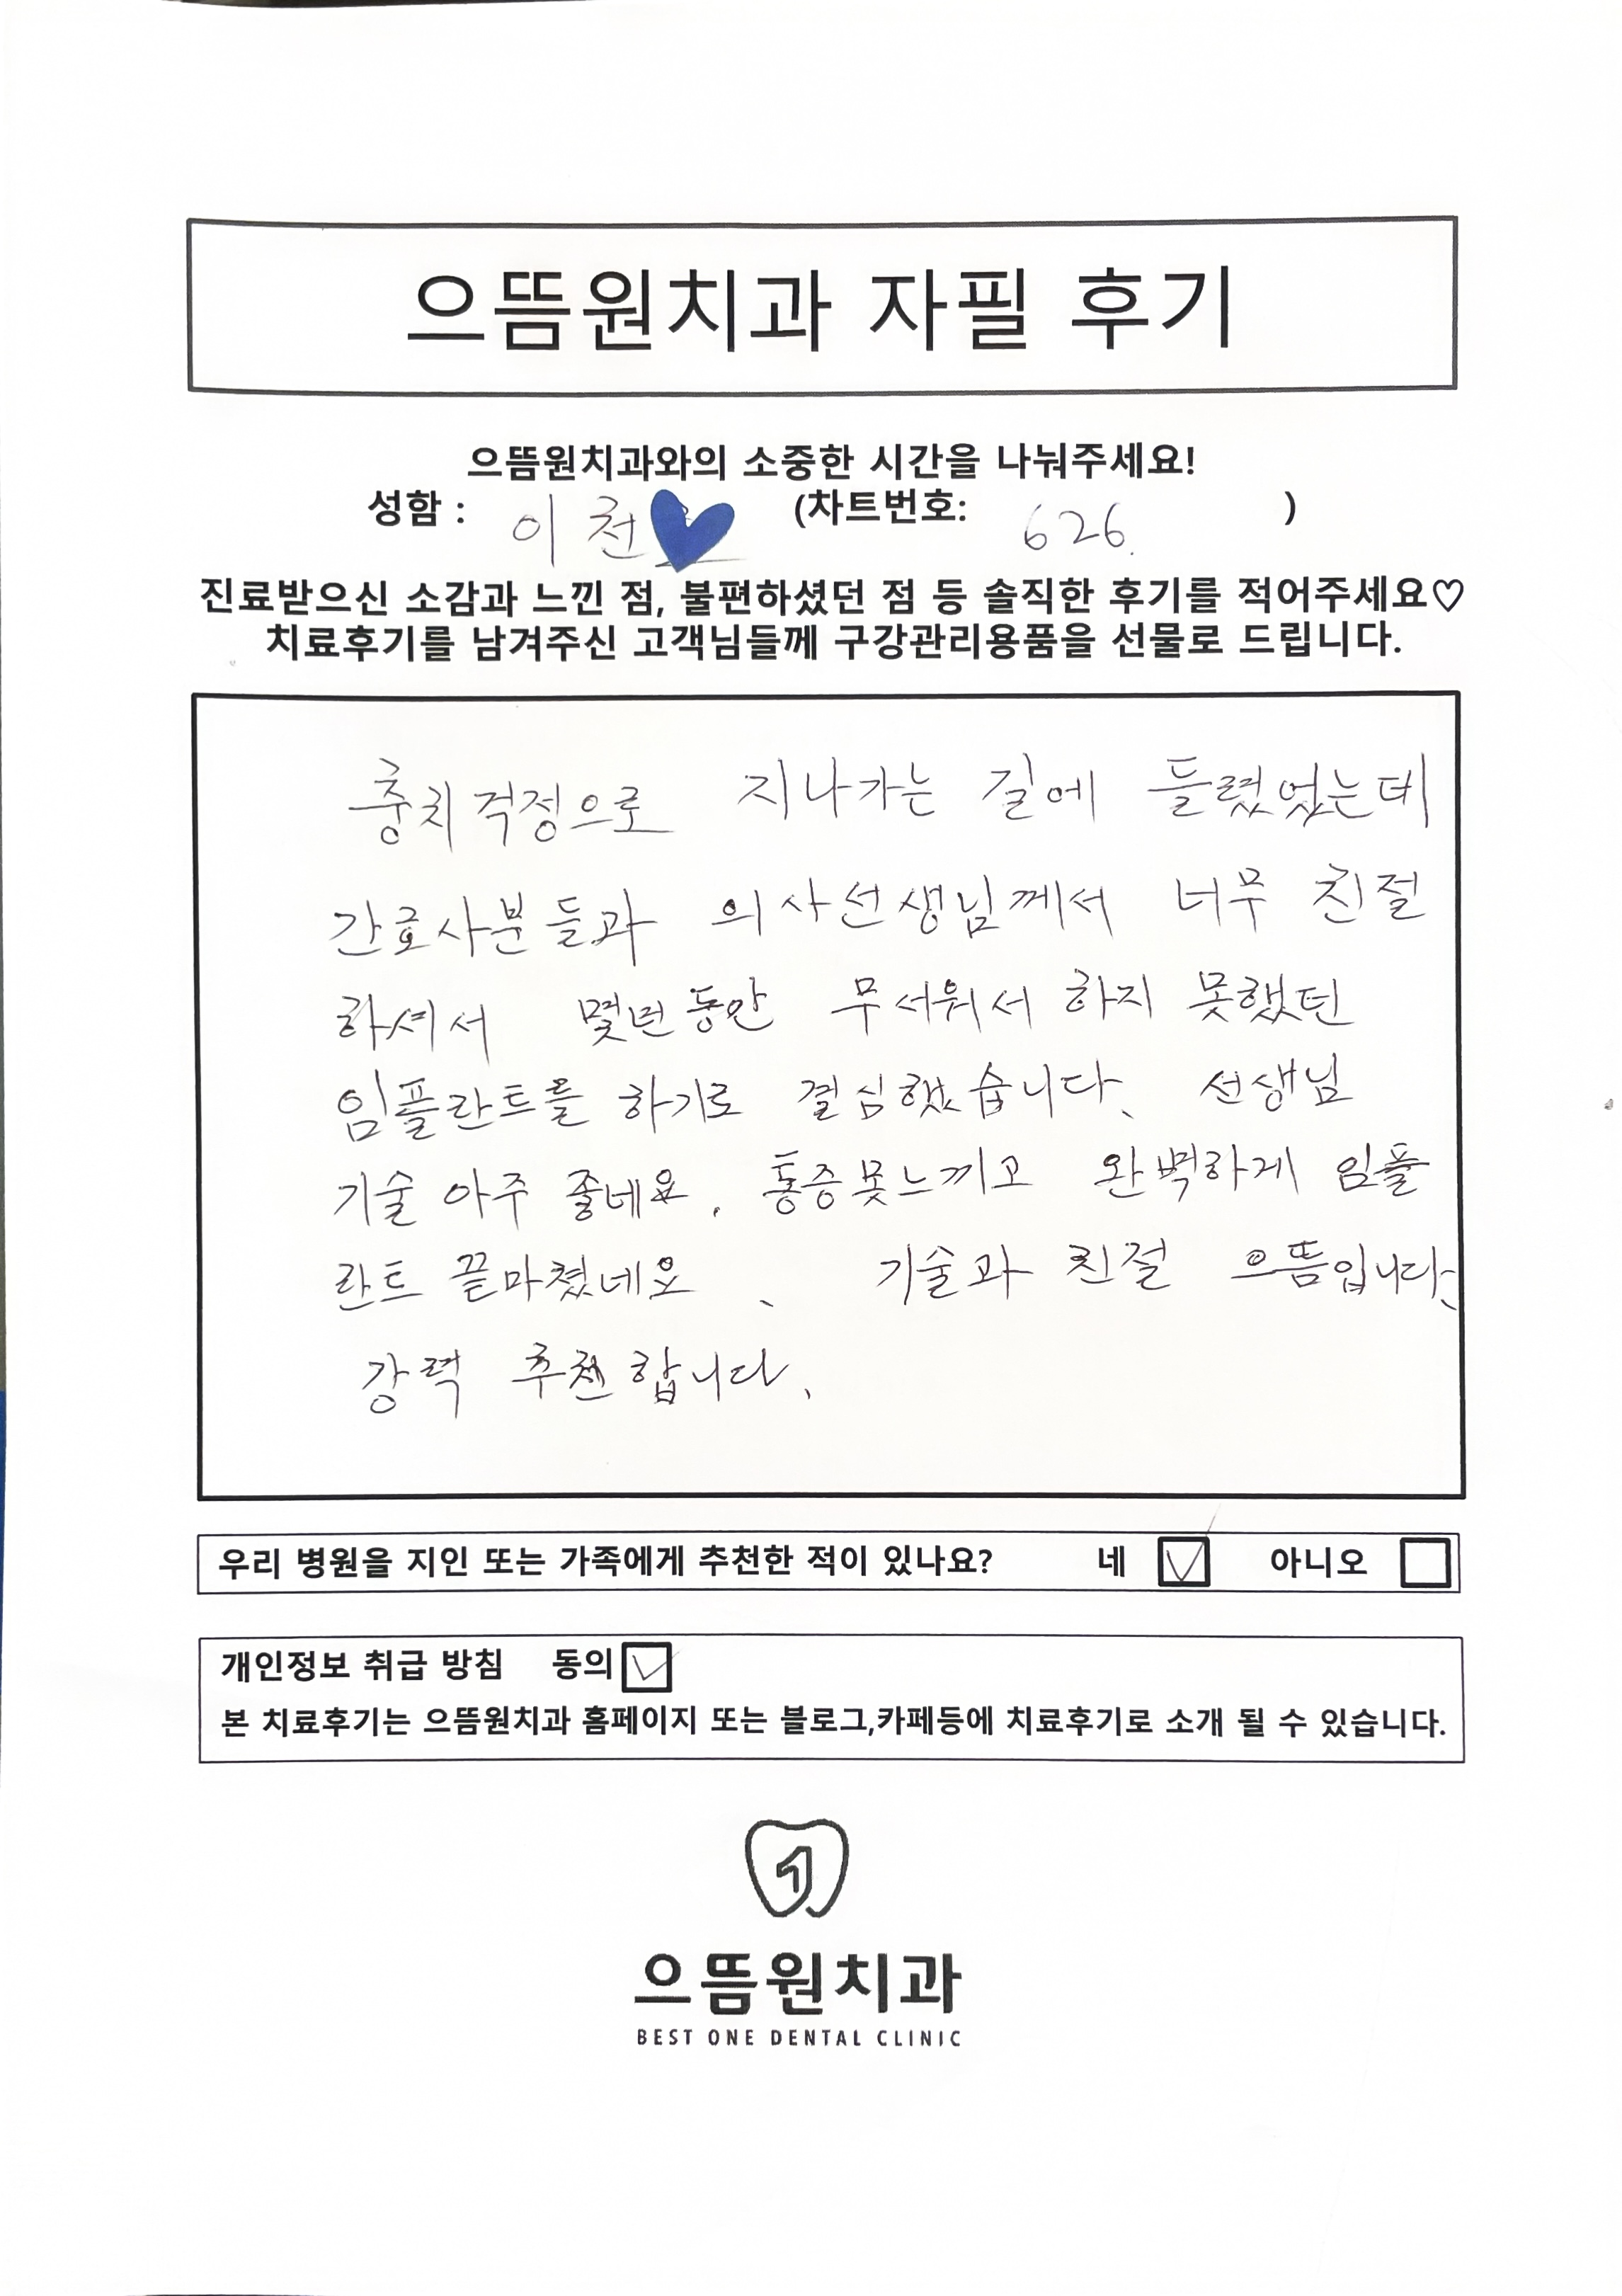 으뜸원치과 자필 후기
으뜸원치과와의 소중한 시간을 나눠주세요!
성함 : 이 천 (차트번호: 626. )
진료받으신 소감과 느낀 점, 불편하셨던 점 등 솔직한 후기를 적어주세요♡
치료후기를 남겨주신 고객님들께 구강관리용품을 선물로 드립니다.
충치걱정으로 지나가는 길에 들렸었는데
간호사분들과 의사선생님께서 너무 친절
하셔서 몇년동안 무서워서 하지 못했던
임플란트를 하기로 결심했습니다. 선생님
기술 아주 좋네요. 통증못느끼고 완벽하게 임플
란트 끝마쳤네요. 기술과 친절 으뜸입니다.
강력 추천합니다.
우리 병원을 지인 또는 가족에게 추천한 적이 있나요? 네 아니오
개인정보 취급 방침 동의
본 치료후기는 으뜸원치과 홈페이지 또는 블로그,카페등에 치료후기로 소개 될 수 있습니다.
1
으뜸원치과
BEST ONE DENTAL CLINIC